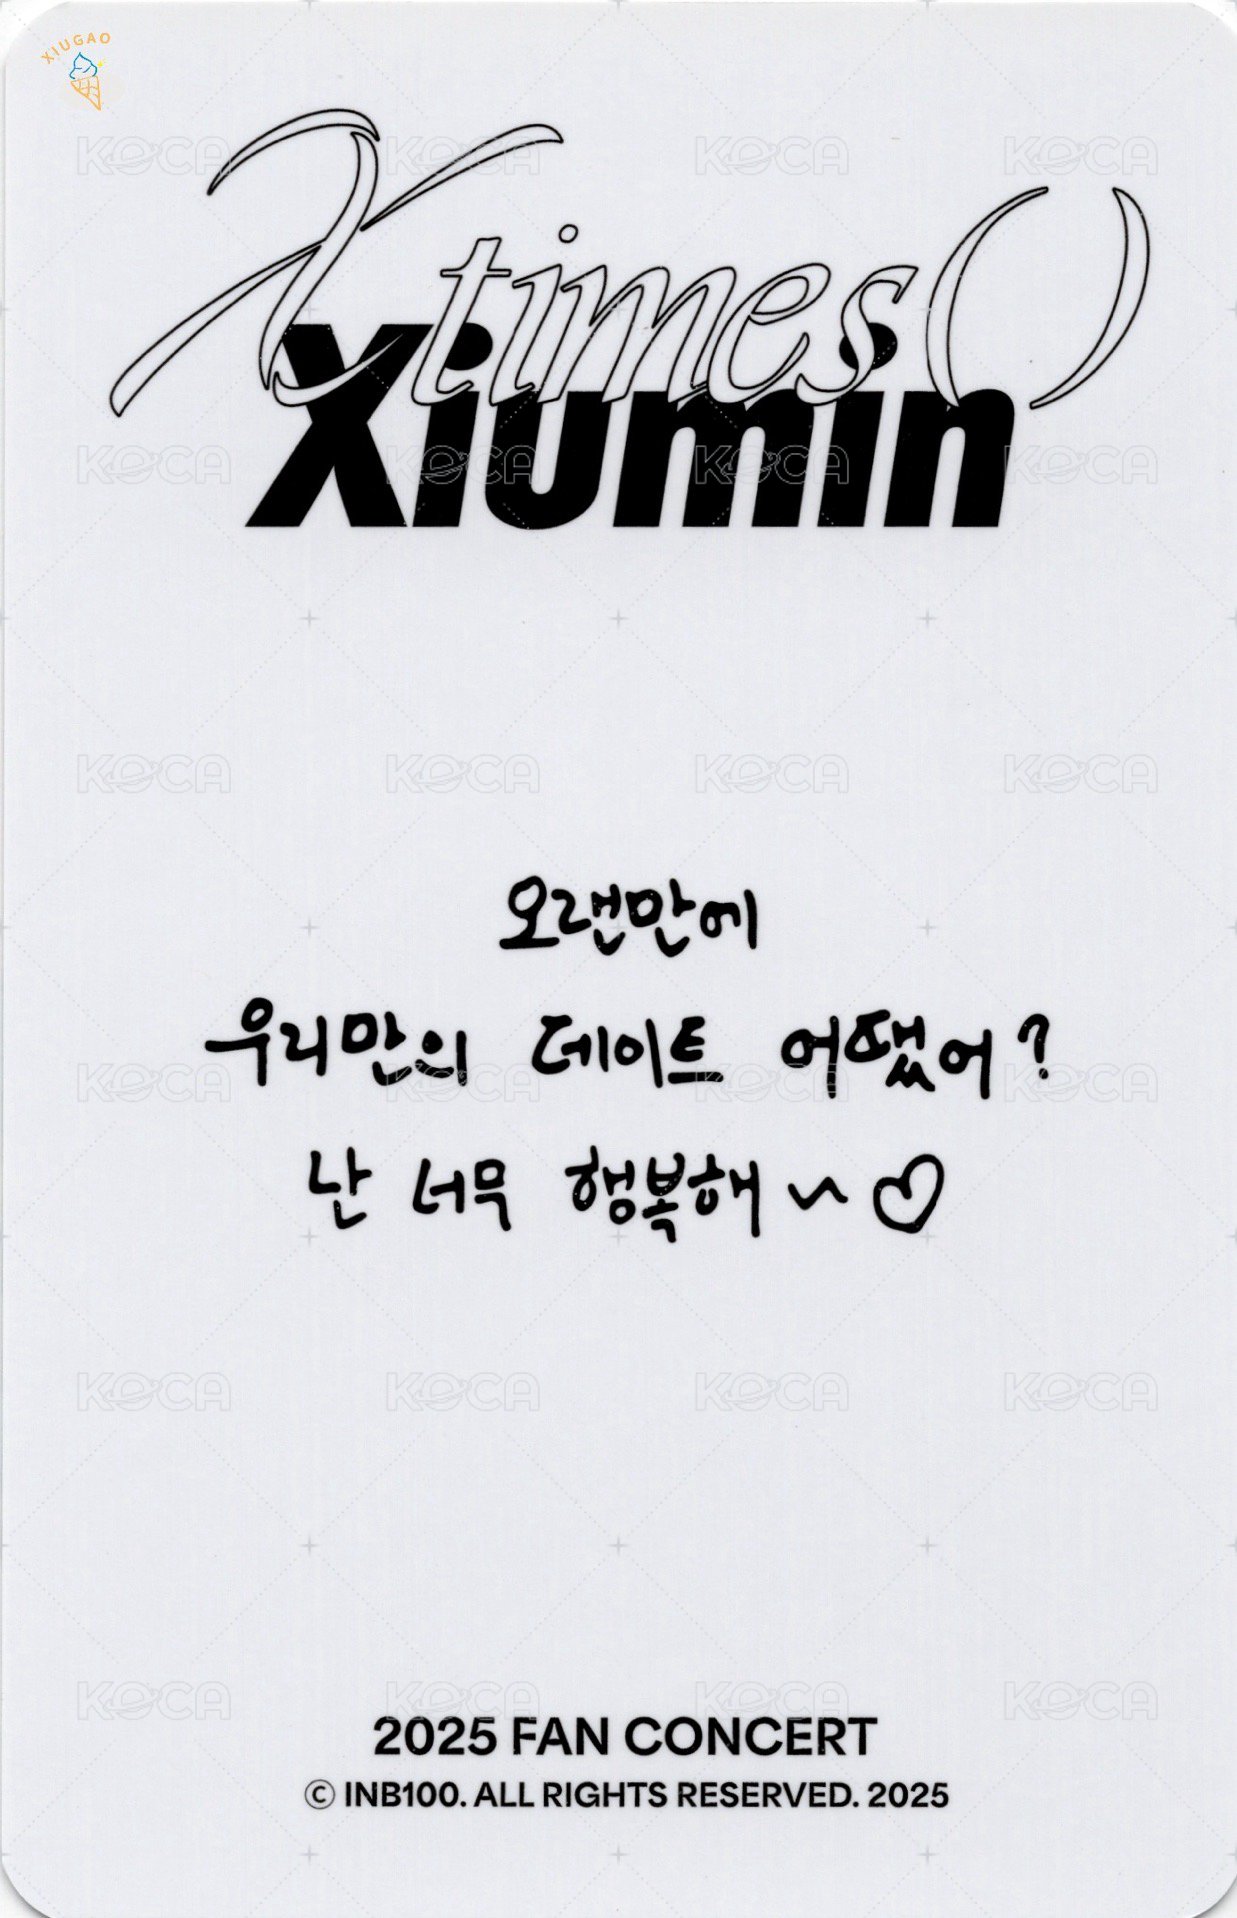 XIUGAO
X times ( )
Xiumin
오랜만에
우리만의 데이트 어땠어?
난 너무 행복해~♡
2025 FAN CONCERT
Ⓒ INB100. ALL RIGHTS RESERVED. 2025
KOCA KOCA KOCA KOCA
KOCA KOCA KOCA KOCA
KOCA KOCA KOCA KOCA
KOCA KOCA KOCA KOCA
KOCA KOCA KOCA KOCA
KOCA KOCA KOCA KOCA